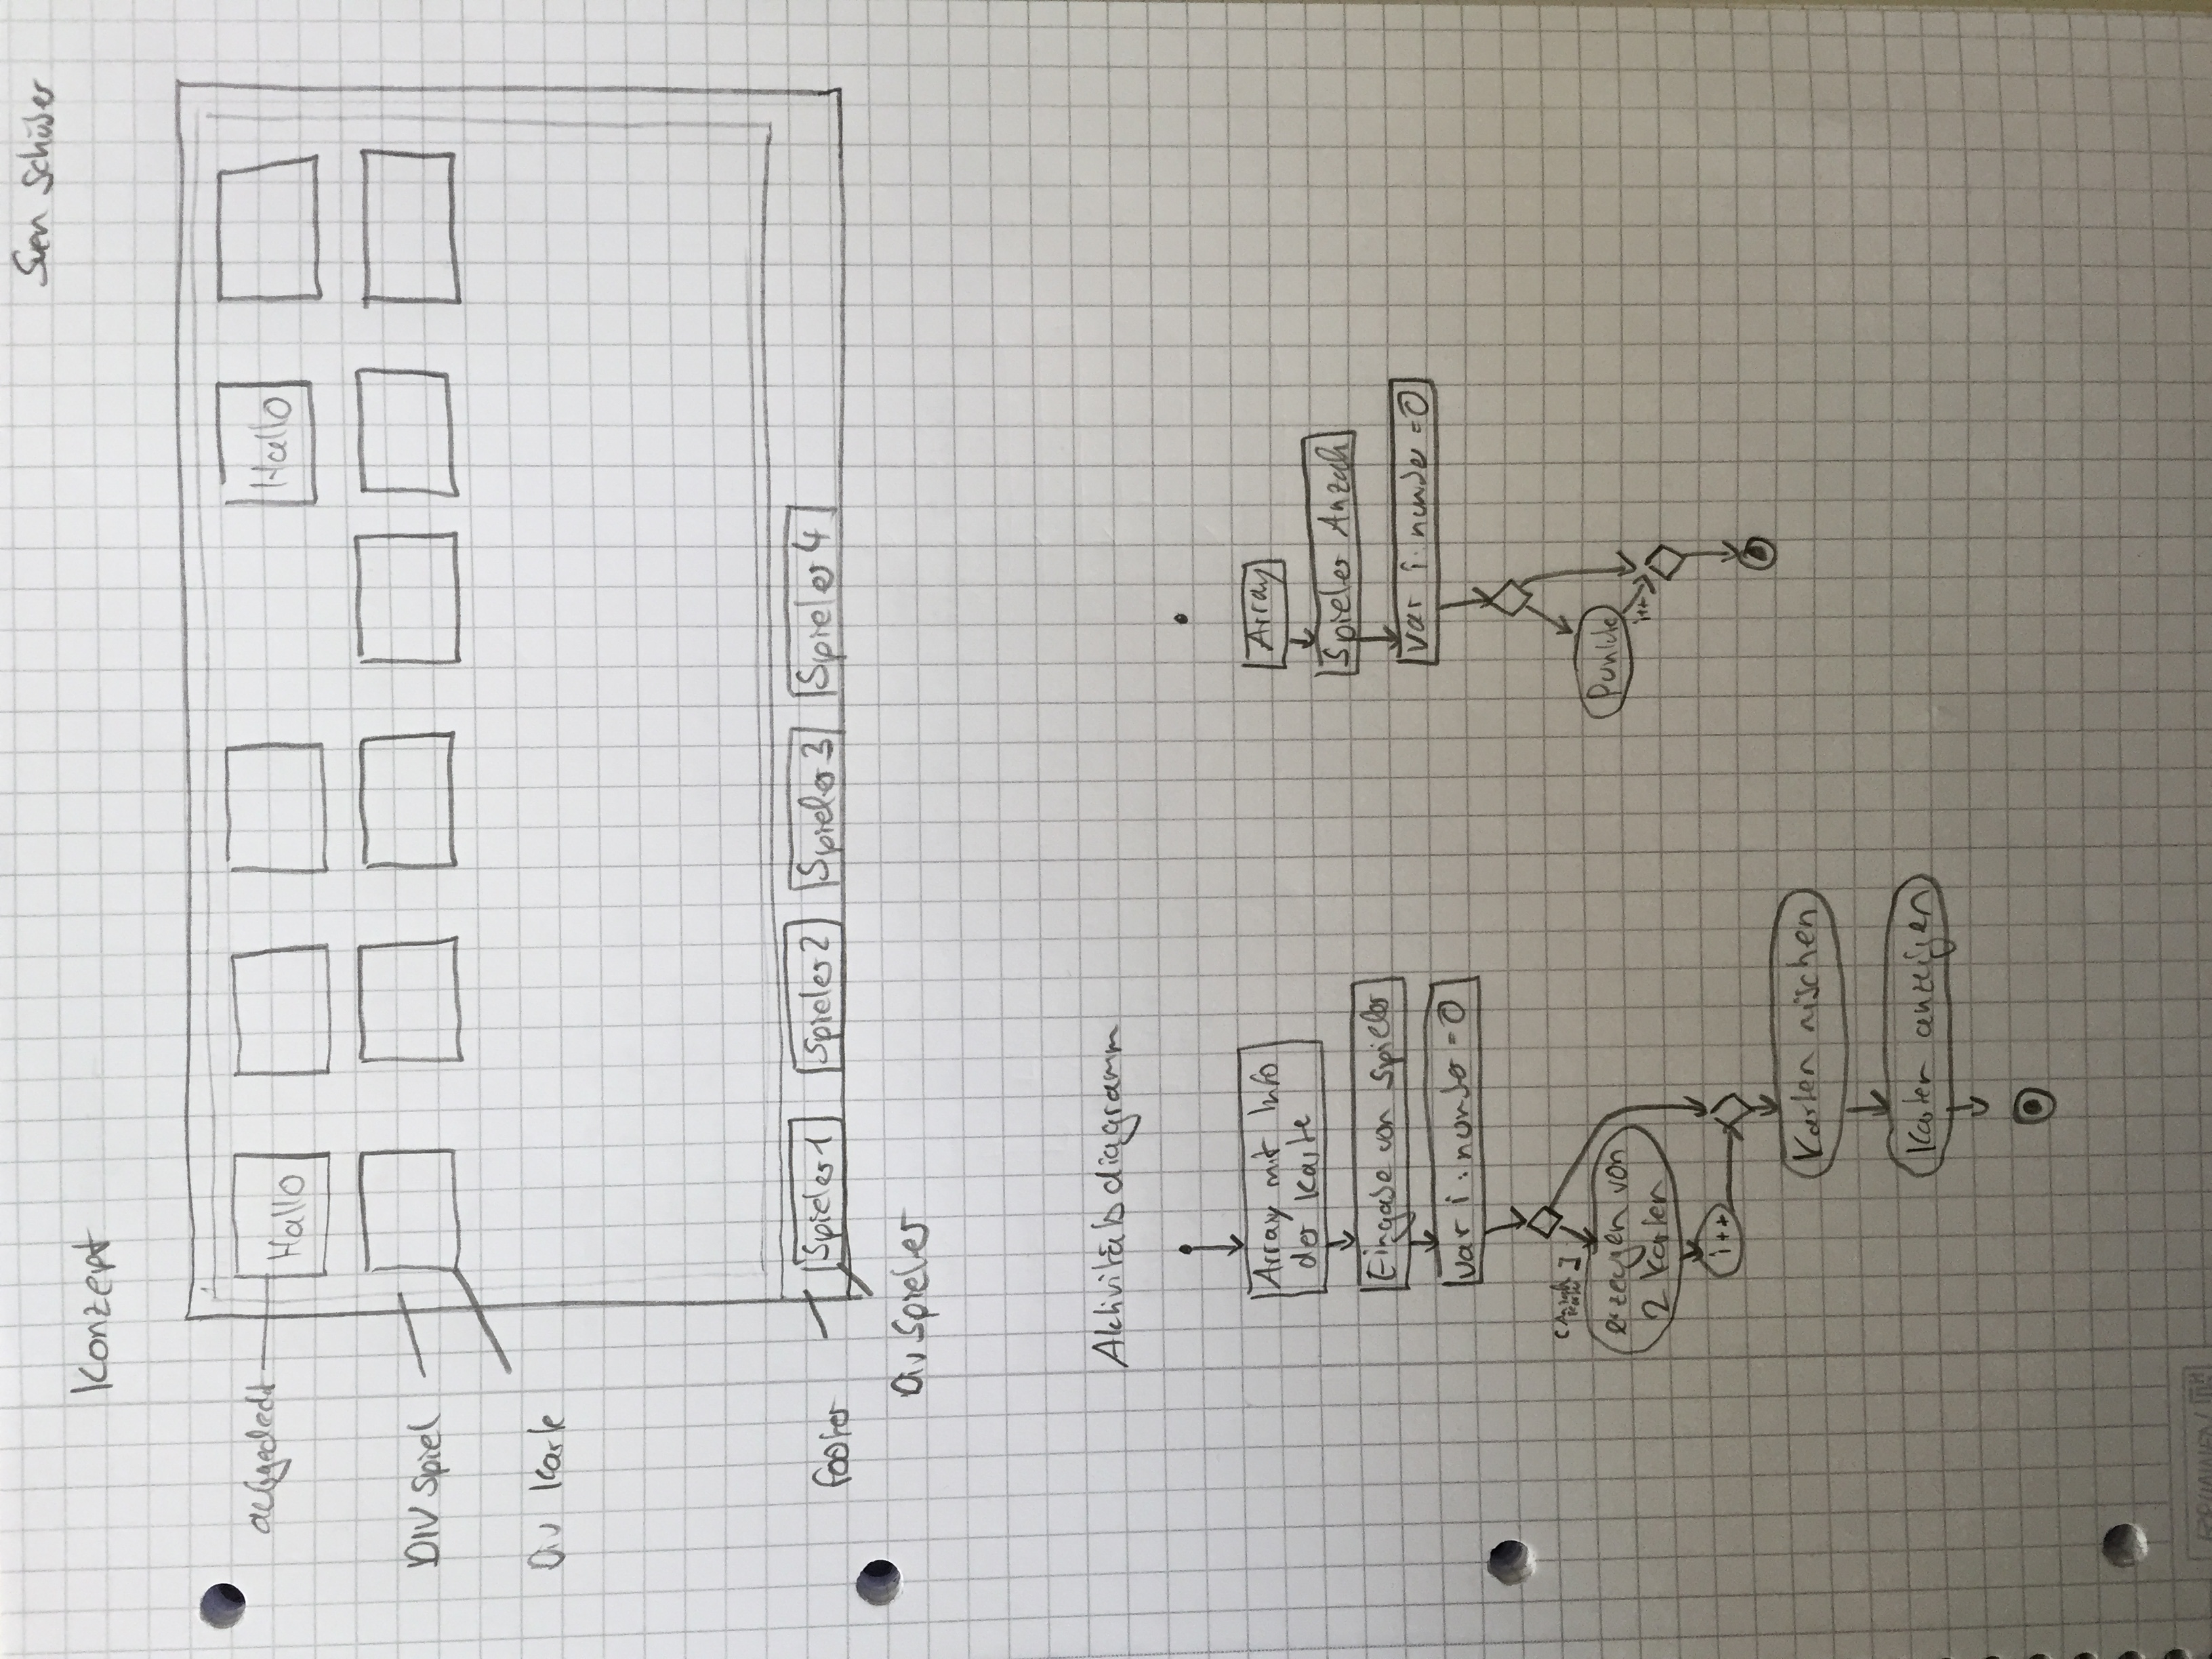 Sven Schüber
Konzept
aufgedeckt
Hallo
Hallo
DIV Spiel
Div Karte
footer
Spieler 1
Spieler 2
Spieler 3
Spieler 4
Div Spieler
Aktivitätsdiagramm
Array mit Info
der Karte
Eingabe von Spieler
var i : number = 0
[Anzahl
Karten]
erzeugen von
2 Karten
i++
Karten mischen
Karten anzeigen
Array
Spieler Anzahl
var i : number = 0
Punkte
i++
BRUNNEN